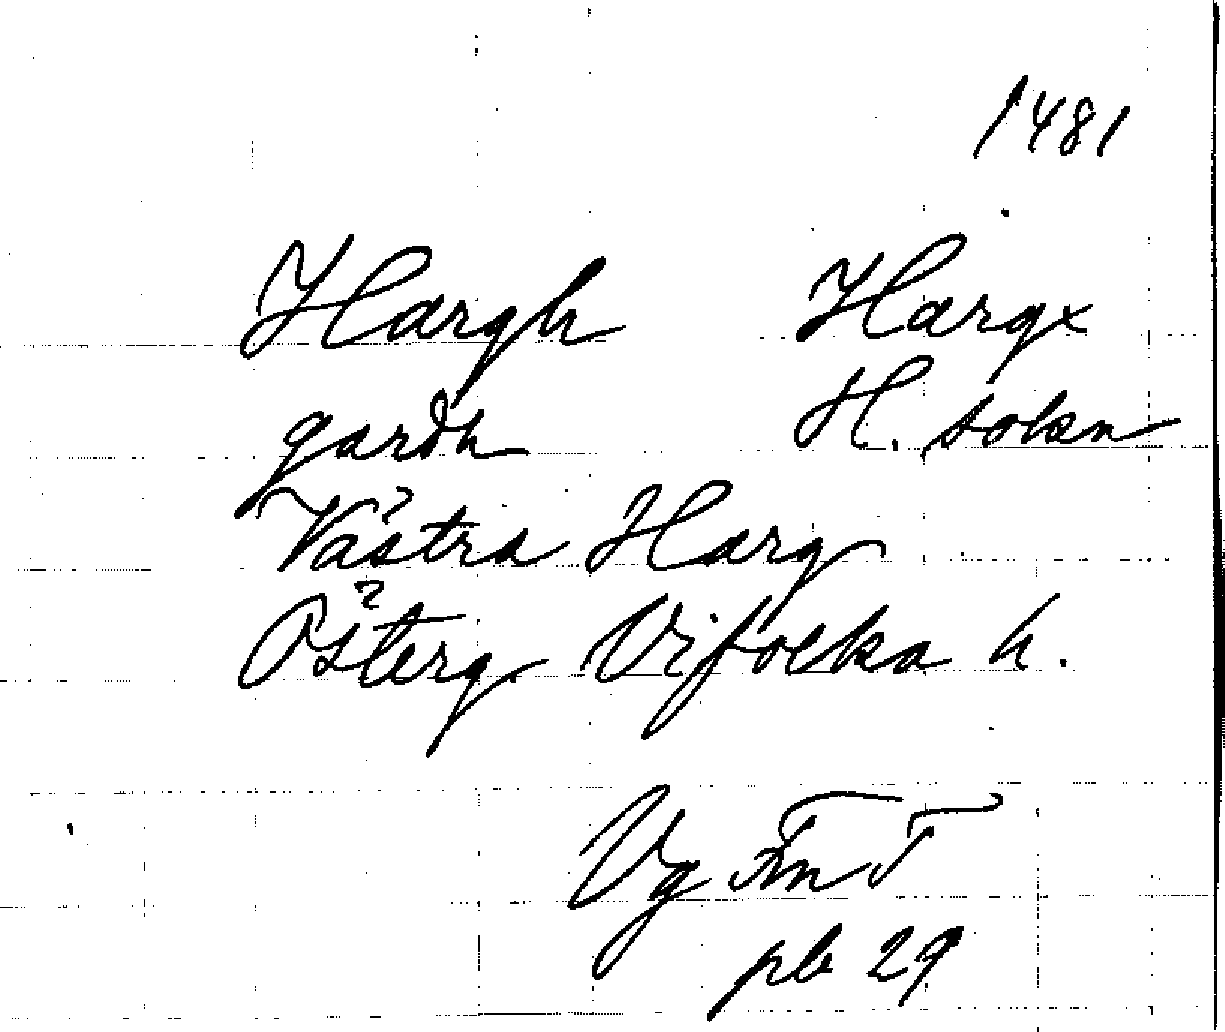 1481
Hargh Hargx
gardh H. sokn
Västra Harg
Österg Vifolka h.
Vg Fn T
pb 29